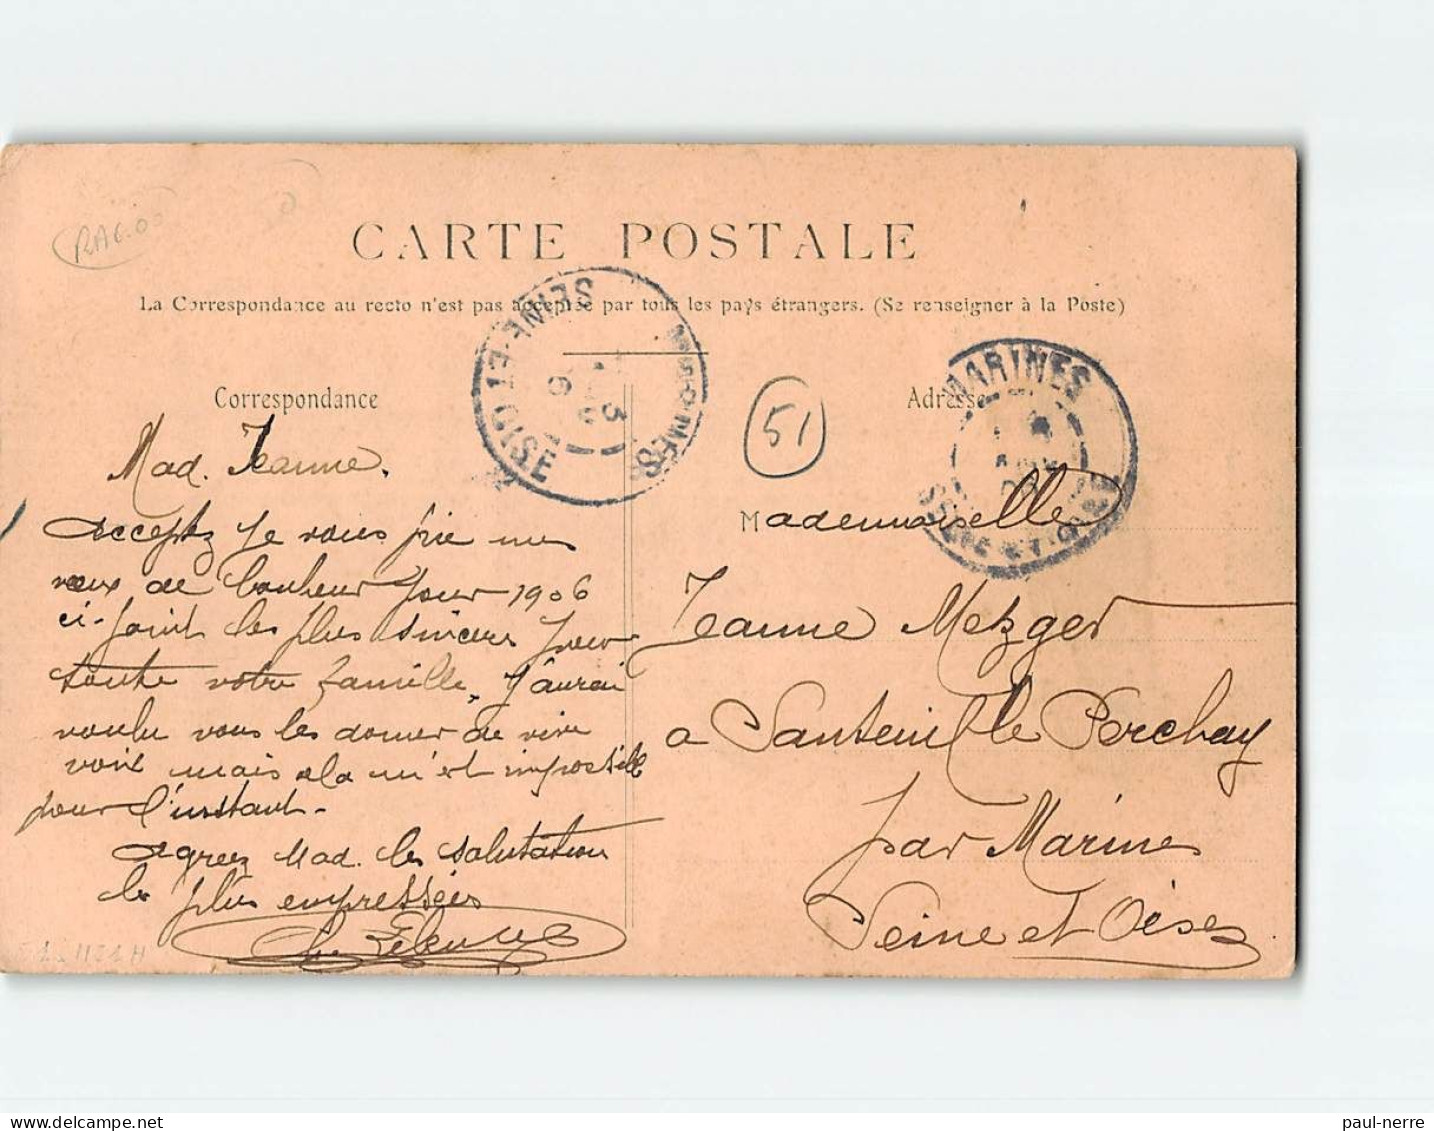 CARTE POSTALE
La Correspondance au recto n'est pas acceptée par tous les pays étrangers. (Se renseigner à la Poste)
Correspondance
Adresse
51
SEINE-ET-OISE
MARINES
SEINE-ET-OISE
Mad. Jeanne.
acceptez je vous prie mes
vœux de bonheur pour 1906
ci-joint les plus sincères pour
toute votre famille, j'aurai
voulu vous les donner de vive
voix mais cela m'est impossible
pour l'instant.
agréez Mad. les salutation
les plus empressées
Mademoiselle
Jeanne Metzger
a Santeuil le Perchay
par Marines
Seine et Oise
paul-nerre